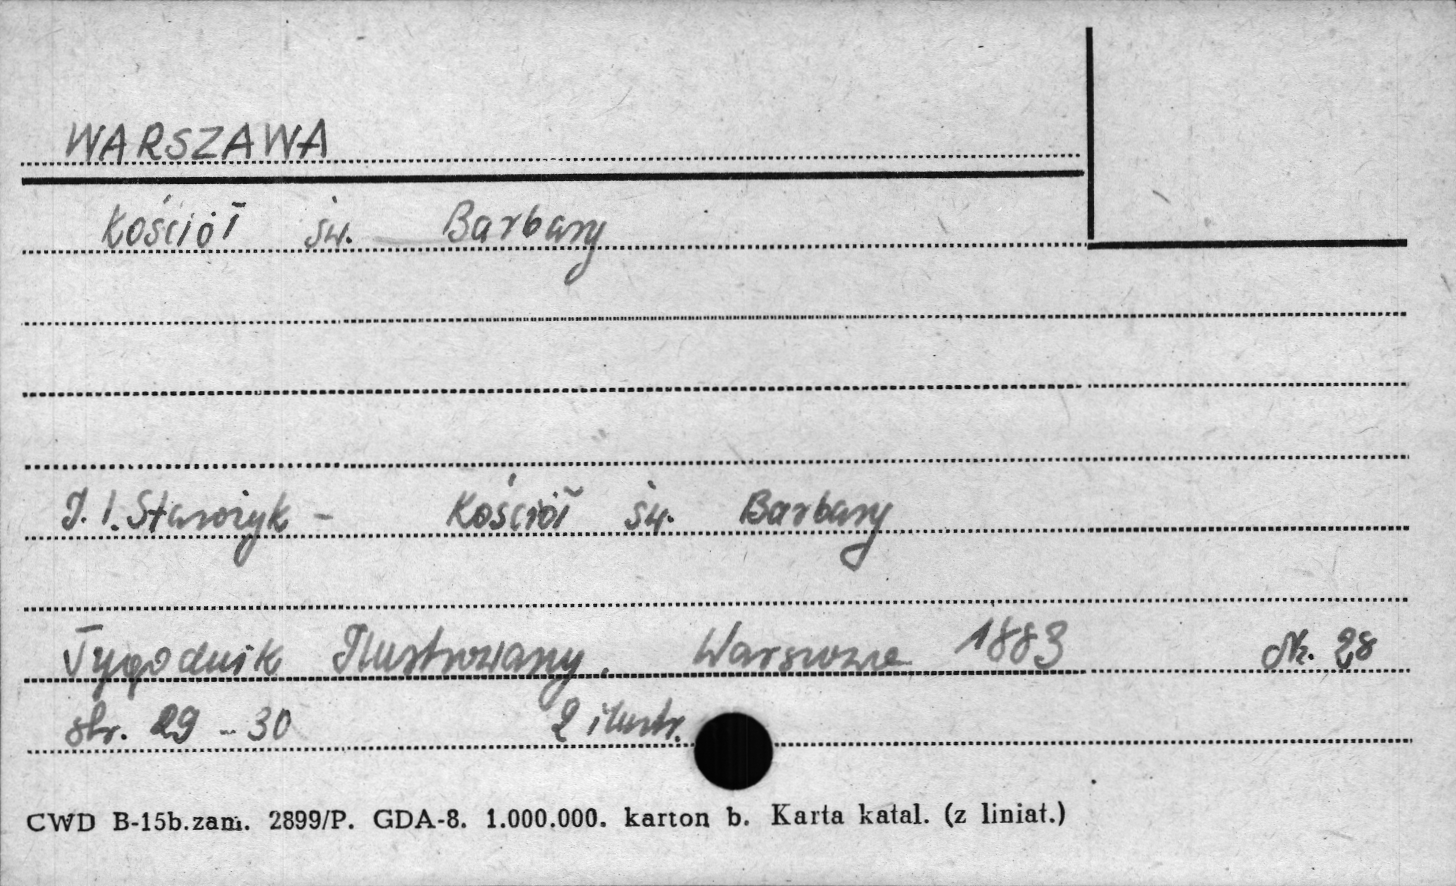 WARSZAWA
Kościół św. Barbary
J. I. Starożyk - Kościół św. Barbary
Tygodnik Ilustrowany. Warszawa 1883 Nr. 28
str. 29 - 30 2 ilustr.
CWD B-15b.zam. 2899/P. GDA-8. 1.000.000. karton b. Karta katal. (z liniat.)